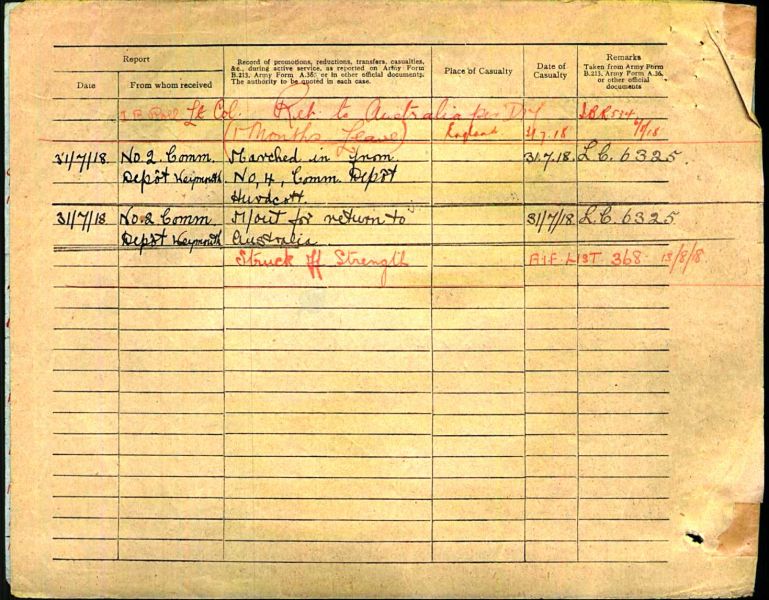 Report
Date
From whom received
Record of promotions, reductions, transfers, casualties,
&c., during active service, as reported on Army Form
B.213, Army Form A.36, or in other official documents.
The authority to be quoted in each case.
Place of Casualty
Date of
Casualty
Remarks
Taken from Army Form
B.213, Army Form A.36,
or other official
documents
Lt Col. Ret to Australia per
(1 Months Leave) England 31.7.18
31/7/18. No. 2. Comm. Marched in from 31.7.18. L.C. 6325
Depôt Weymouth No, 4, Comm. Depôt
Hurdcott.
31/7/18 No. 2 Comm M/out for return to 31/7/18 L.C. 6325
Depôt Weymouth Australia
Struck off Strength A.I.F LIST 368 13/8/18.